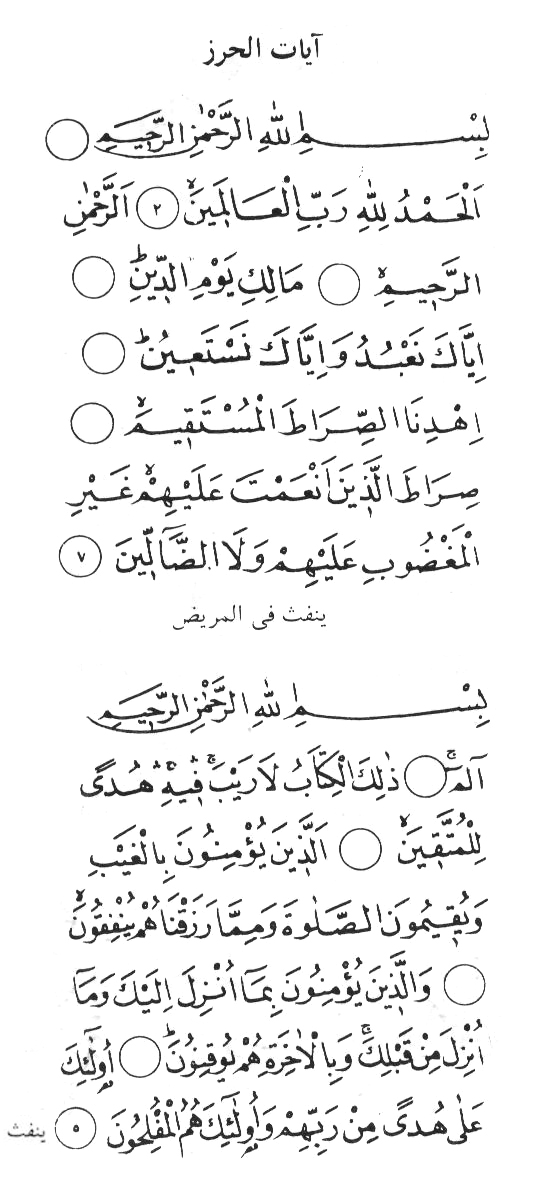 آيات الحرز
بِسْمِ اللهِ الرَّحْمٰنِ الرَّحِيمِ
اَلْحَمْدُ لِلهِ رَبِّ الْعَالَمِينَۙ ٢ اَلرَّحْمٰنِ
الرَّحِيمِۙ مَالِكِ يَوْمِ الدِّينِۜ
اِيَّاكَ نَعْبُدُ وَاِيَّاكَ نَسْتَعِينُۜ
اِهْدِنَا الصِّرَاطَ الْمُسْتَقِيمَۙ
صِرَاطَ الَّذِينَ اَنْعَمْتَ عَلَيْهِمْۙ غَيْرِ
الْمَغْضُوبِ عَلَيْهِمْ وَلَا الضَّٓالِّينَ ٧
ينفث فى المريض
بِسْمِ اللهِ الرَّحْمٰنِ الرَّحِيمِ
الٓمٓۚ ذٰلِكَ الْكِتَابُ لَا رَيْبَۚ فِيهِۚ هُدًى
لِلْمُتَّقِينَۙ اَلَّذِينَ يُؤْمِنُونَ بِالْغَيْبِ
وَيُقِيمُونَ الصَّلٰوةَ وَمِمَّا رَزَقْنَاهُمْ يُنْفِقُونَۙ
وَالَّذِينَ يُؤْمِنُونَ بِمَٓا اُنْزِلَ اِلَيْكَ وَمَٓا
اُنْزِلَ مِنْ قَبْلِكَۚ وَبِالْاٰخِرَةِ هُمْ يُوقِنُونَۜ اُو۬لٰٓئِكَ
عَلٰى هُدًى مِنْ رَبِّهِمْ وَاُو۬لٰٓئِكَ هُمُ الْمُفْلِحُونَ ٥ ينفث